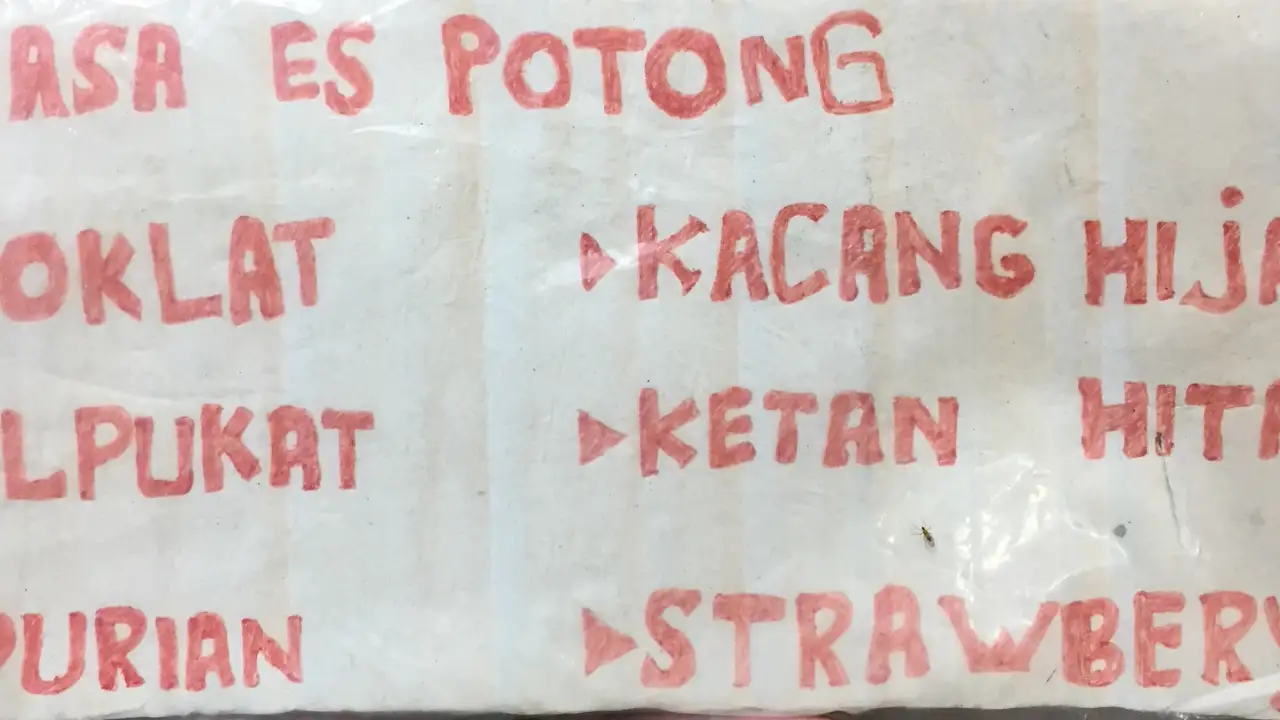 ASA ES POTONG
OKLAT ▸KACANG HIJA
LPUKAT ▸KETAN HITA
DURIAN ▸STRAWBERY